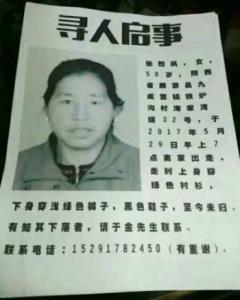 寻人启事
张烈凤,女,
50岁,陕西
省麟游县九
成宫镇铁炉
沟村海家湾
组32号,于
2017年5月
29日早上7
点离家出走,
走时上身穿
绿色衬衫,
下身穿浅绿色裤子,黑色鞋子,至今未归。
有知其下落者,请于金先生联系。
联系电话:15291782450(有重谢)。